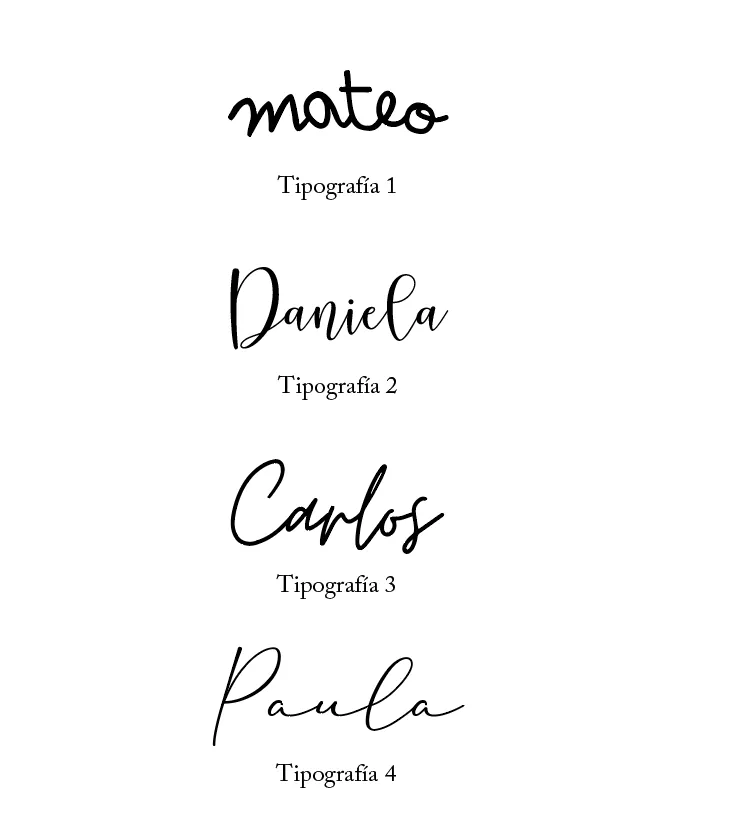 mateo
Tipografía 1
Daniela
Tipografía 2
Carlos
Tipografía 3
Paula
Tipografía 4